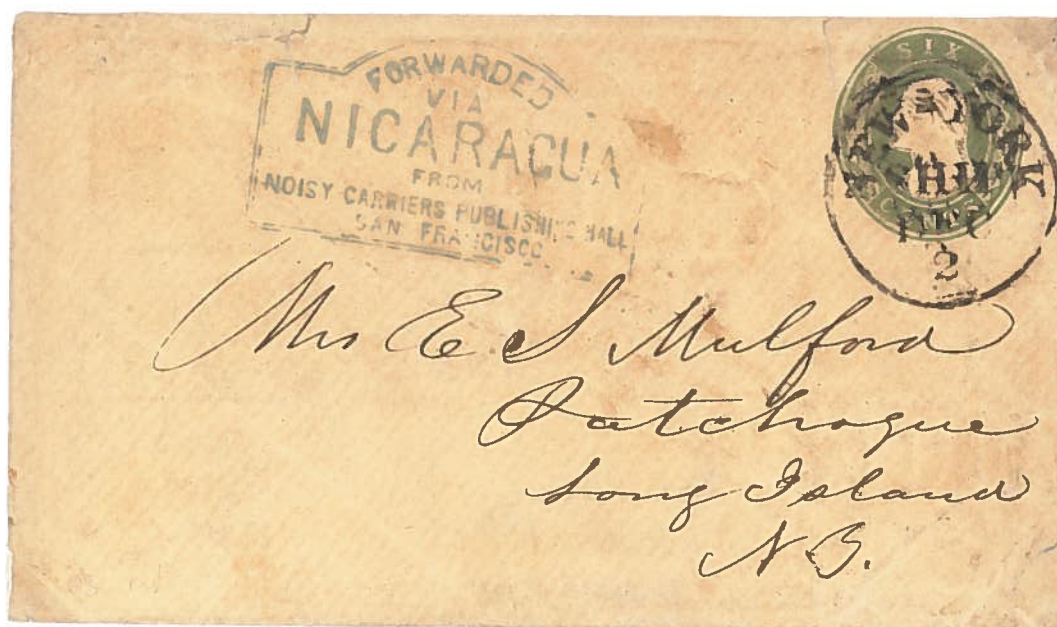 FORWARDED
VIA
NICARAGUA
FROM
NOISY CARRIERS PUBLISHING HALL
SAN FRANCISCO
SIX
CENTS
NEW-YORK
SHIP
DEC
2
Mrs E S Mulford
Patchogue
Long Island
N Y.